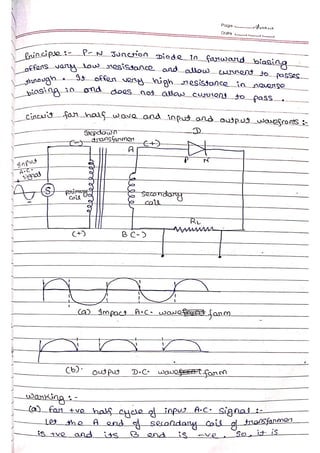 Page
Date
Principle :- P-N Junction Diode in forward biasing
offers very low resistance and allow current to passes
through. It offers very high resistance in reverse
biasing in and does not allow current to pass.
Circuit for half wave and input and output wavefronts :-
Stepdown
transformer
D
(-)
A
(+)
P
N
Input
A.C.
signal
S
primary
coil
Secondary
coil
RL
(+)
B (-)
(a) Impact A.C. wave form
(b) output D.C. wave form
Working :-
(a) For +ve half cycle of input A.C. signal :-
Let the A end of secondary coil of transformer
is +ve and its B end is -ve. So, it is